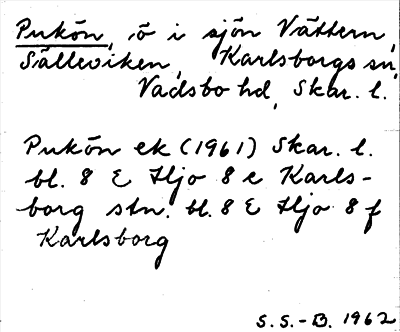 Pukön, ö i sjön Vättern,
Sätleviken, Karlsborgs sn,
Vadsbo hd, Skar. l.
Pukön ek (1961) Skar. l.
bl. 8 E Hjo 8 e Karls-
borg stn. bl. 8 E Hjo 8 f
Karlsborg
S.S.-B. 1962